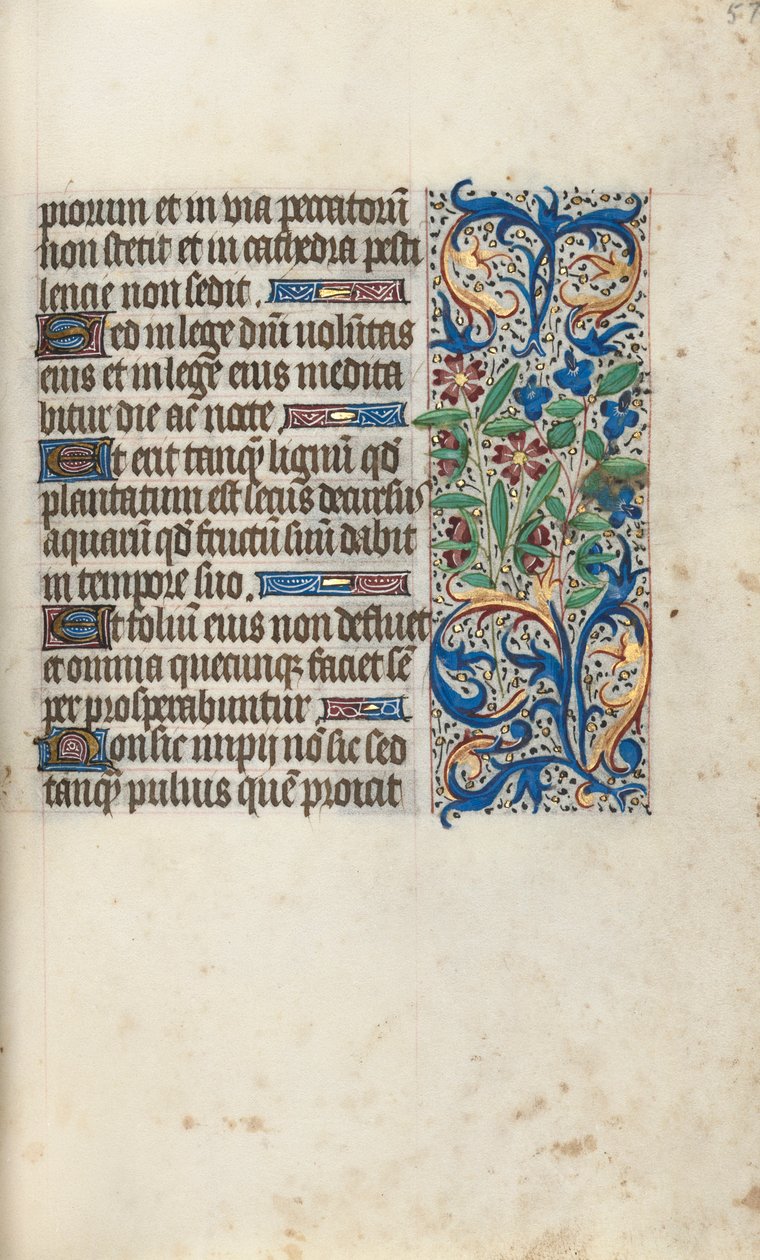 57
piorum et in via peccatorū
non stetit et in cathedra pesti
lencie non sedit.
Sed in lege dn̄i volūtas
eius et in lege eius medita
bitur die ac nocte
Et erit tanqȝ lignū qd̄
plantatum est secus decursus
aquarū qd̄ fructū suū dabit
in tempore suo.
Et foliū eius non defluet
et omnia quecunqȝ faciet sē
per prosperabuntur
Non sic impij nō sic sed
tanqȝ puluis quē proicit